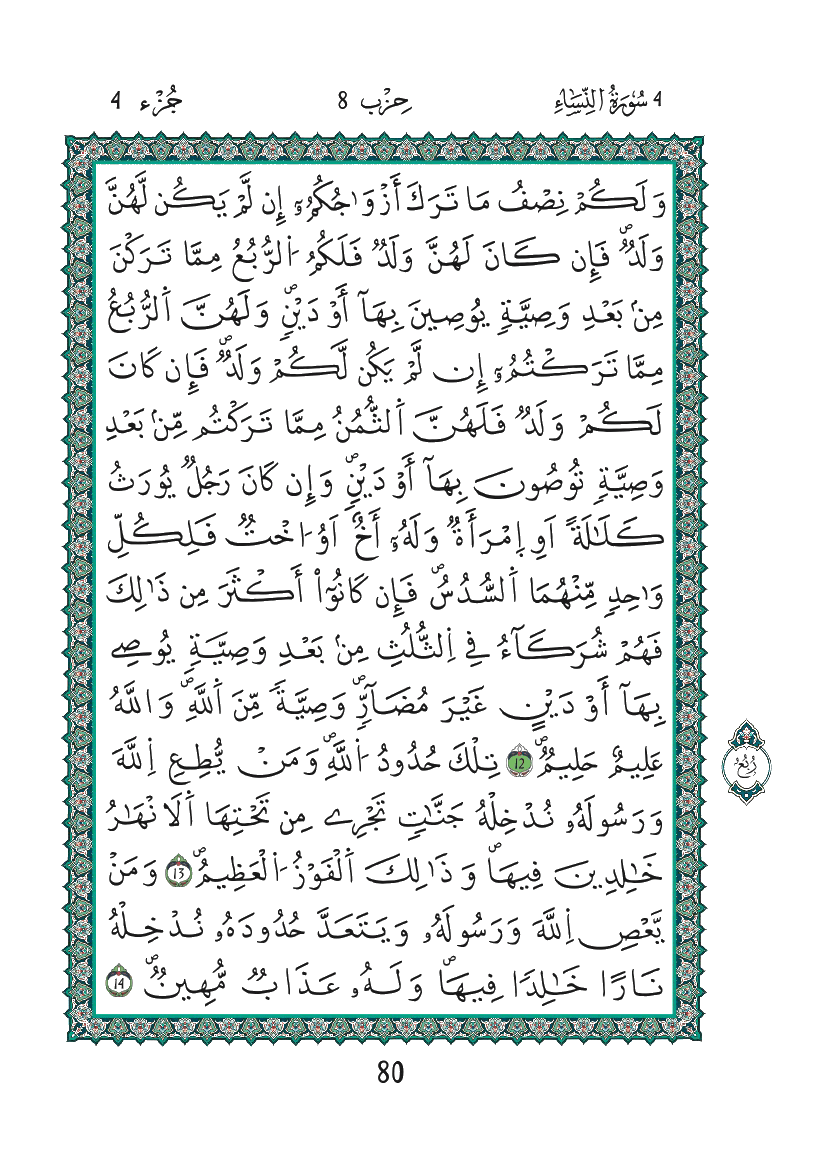 4 سُورَةُ النِّسَاءِ
حِزْب 8
جُزْء 4
وَلَكُمْ نِصْفُ مَا تَرَكَ أَزْوَٰجُكُمُۥٓ إِن لَّمْ يَكُن لَّهُنَّ
وَلَدٌۖ فَإِن كَانَ لَهُنَّ وَلَدٌ فَلَكُمُ اُ۬لرُّبُعُ مِمَّا تَرَكْنَ
مِنۢ بَعْدِ وَصِيَّةٍ يُوصِينَ بِهَآ أَوْ دَيْنٍۖ وَلَهُنَّ اَ۬لرُّبُعُ
مِمَّا تَرَكْتُمُۥٓ إِن لَّمْ يَكُن لَّكُمْ وَلَدٌۖ فَإِن كَانَ
لَكُمْ وَلَدٌ فَلَهُنَّ اَ۬لثُّمُنُ مِمَّا تَرَكْتُم مِّنۢ بَعْدِ
وَصِيَّةٍ تُوصُونَ بِهَآ أَوْ دَيْنٍۖ وَإِن كَانَ رَجُلٌ يُورَثُ
كَلَٰلَةً اَوِ اِ۪مْرَأَةٌ وَلَهُۥٓ أَخٌ اَوُ ا۟خْتٌ فَلِكُلِّ
وَٰحِدٍ مِّنْهُمَا اَ۬لسُّدُسُۖ فَإِن كَانُوٓاْ أَكْثَرَ مِن ذَٰلِكَ
فَهُمْ شُرَكَآءُ فِے اِ۬لثُّلُثِ مِنۢ بَعْدِ وَصِيَّةٍ يُوصِے
بِهَآ أَوْ دَيْنٍ غَيْرَ مُضَآرٍّۖ وَصِيَّةً مِّنَ اَ۬للَّهِۖ وَاللَّهُ
عَلِيمٌ حَلِيمٌۖ 12 تِلْكَ حُدُودُ اُ۬للَّهِۖ وَمَنْ يُّطِعِ اِ۬للَّهَ
وَرَسُولَهُۥ نُدْخِلْهُ جَنَّٰتٍ تَجْرِے مِن تَحْتِهَا اَ۬لَانْهَٰرُ
خَٰلِدِينَ فِيهَاۖ وَذَٰلِكَ اَ۬لْفَوْزُ اُ۬لْعَظِيمُۖ 13 وَمَنْ
يَّعْصِ اِ۬للَّهَ وَرَسُولَهُۥ وَيَتَعَدَّ حُدُودَهُۥ نُدْخِلْهُ
نَارًا خَٰلِدًا فِيهَاۖ وَلَهُۥ عَذَابٌ مُّهِينٌۖ 14
رُبُعُ
80